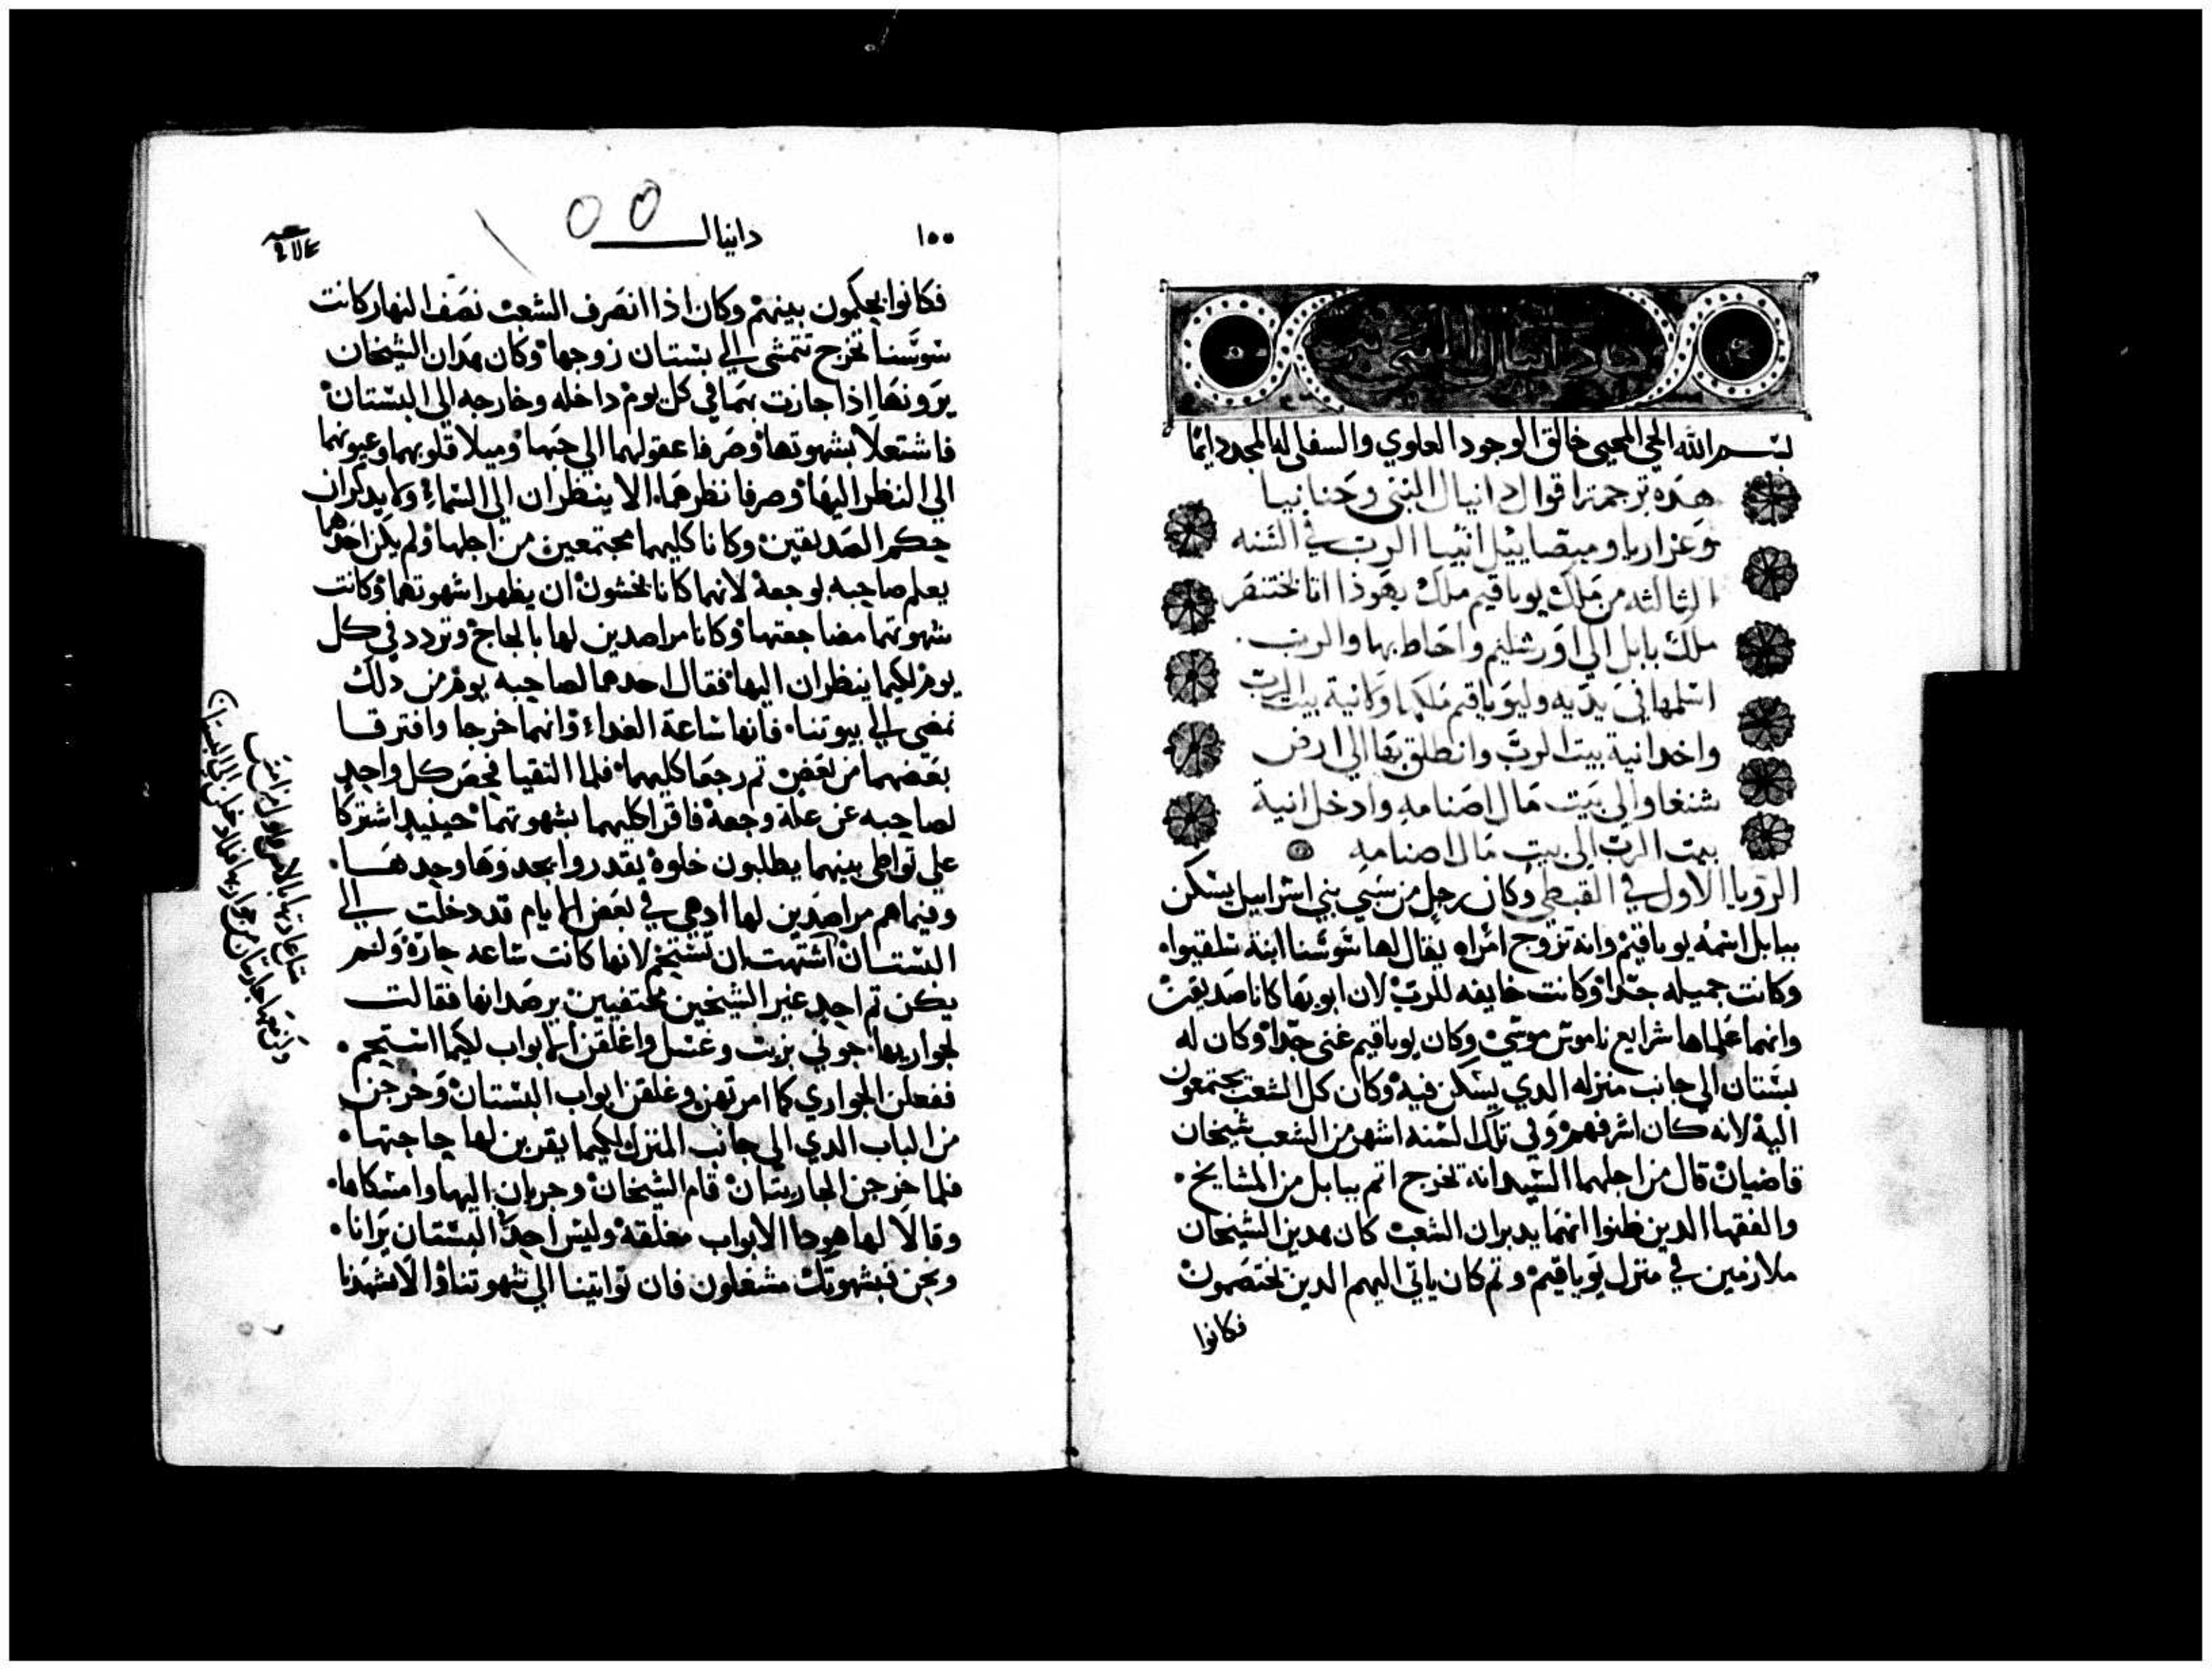 بسم الله الحي المحيي خالق الوجود العلوي والسفلي له المجد دايمًا
هذه ترجمة اقوال دانيال النبي وحنانيا
وعزاريا وميصاييل انبيا الرب في السنه
الثالثه من ملك يوياقيم ملك يهوذا اتا بختنصر
ملك بابل الي اورشليم واحاط بها والرب
اسلمها في يديه وليوياقيم ملكها وكانية بيت الرب
واخد انية بيت الرب وانطلق بها الي ارض
شنغار الي بيت مال اصنامه وادخل انية
بيت الرب الي بيت مال اصنامه
الرويا الاول في القبطي وكان رجل من سبي بني اسراييل يسكن
ببابل اسمه يوياقيم وانه تزوج امراه يقال لها سوسنا ابنة خلقيوا
وكانت جميله جدا وكانت خايفه للرب لان ابويها كانا صديقين
وانهما علماها شرايع ناموس موسي وكان يوياقيم غني جدا وكان له
بستان الي جانب منزله الدي يسكن فيه وكان كل الشعب يجتمعون
اليه لانه كان اشرفهم وفي تلك السنه اشهر من الشعب شيخان
قاضيان قال من اجلهما السيد انه تخرج اتم ببابل من المشايخ
والفقها الدين ظنوا انهما يدبران الشعب كان هدين الشيخان
ملازمين في منزل يوياقيم وتم كان ياتي اليهم الدين يختصمون
فكانوا
١٥٥
دانيال
فكانوا يحكمون بينهم وكان اذا انصرف الشعب نصف النهار كانت
سوسنا تخرج تتمشي الي بستان زوجها وكان هدان الشيخان
يرونها اذا جازت بهما في كل يوم داخله وخارجه الي البستان
فاشتعلا بشهوتها وصرفا عقولهما الي حبها وميلا قلوبهما وعيونهما
الي النظر اليها وصرفا نظرهما الا ينظران الي السماء ولا يدكران
حكم الصديقين وكانا كليهما مجتمعين من اجلها ولم يكن احدهما
يعلم صاحبه بوجعه لانهما كانا يخشون ان يظهرا شهوتهما وكانت
شهوتهما مضاجعتها وكانا مراصدين لها بالحاح وتردد في كل
يوم لكيما ينظران اليها فقال احدهما لصاحبه يوم من دلك
نمضي الي بيوتنا فانها ساعة الغداء وانهما خرجا وافترقا
بعضهما من بعض تم رجعا كليهما فلما التقيا فحص كل واحد
لصاحبه عن علة وجعه فاقرا كليهما بشهوتهما حينيد اشتركا
علي تواطي بينهما يطلبون خلوة يقدروا يجدوها وحدها
وفيما هم مراصدين لها ادهي في بعض الايام قد دخلت الي
البستان اشتهت ان تستحم لانها كانت ساعه حاره ولم
يكن تم احد غير الشيخين مختفيين يرصدانها فقالت
لجواريها جوني بزيت وغسل واغلقن الابواب لكيما استحم
ففعلن الجواري كما امرتهن وغلقن ابواب البستان وخرجن
من الباب الدي الي جانب المنزل لكيما يقربن لها حاجتها
فلما خرجن الجاريتان قام الشيخان وجريان اليها وامسكاها
وقالا لها هودا الابواب مغلقه وليس احد في البستان يرانا
ونحن فبشهوتك مشغلون فان تواتينا الي شهوتنا والا شهدنا